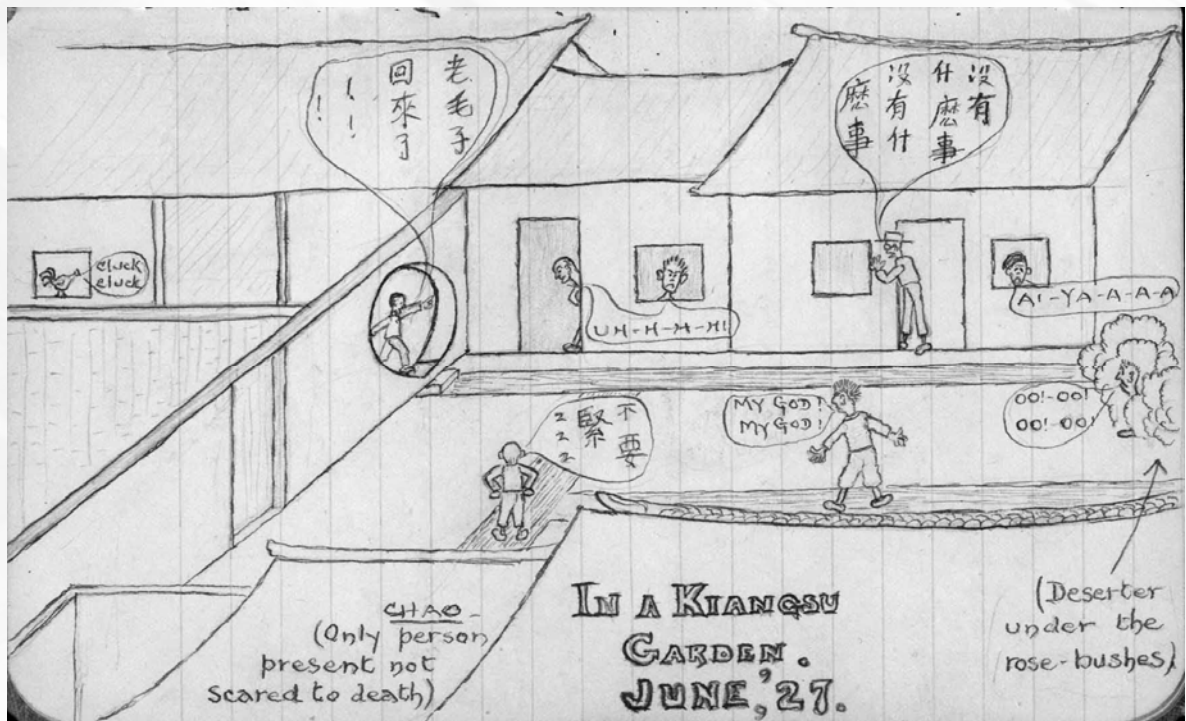 老毛子
回來了
！！
！
沒有
什麼事
沒有什
麼事
cluck
cluck
UH-H-H-H!
AI-YA-A-A-A
MY GOD!
MY GOD!
OO!-OO!
OO!-OO!
不要
緊
2
2
2
CHAO -
(Only person
present not
scared to death)
IN A KIANGSU
GARDEN.
JUNE, '27.
(Deserter
under the
rose-bushes)